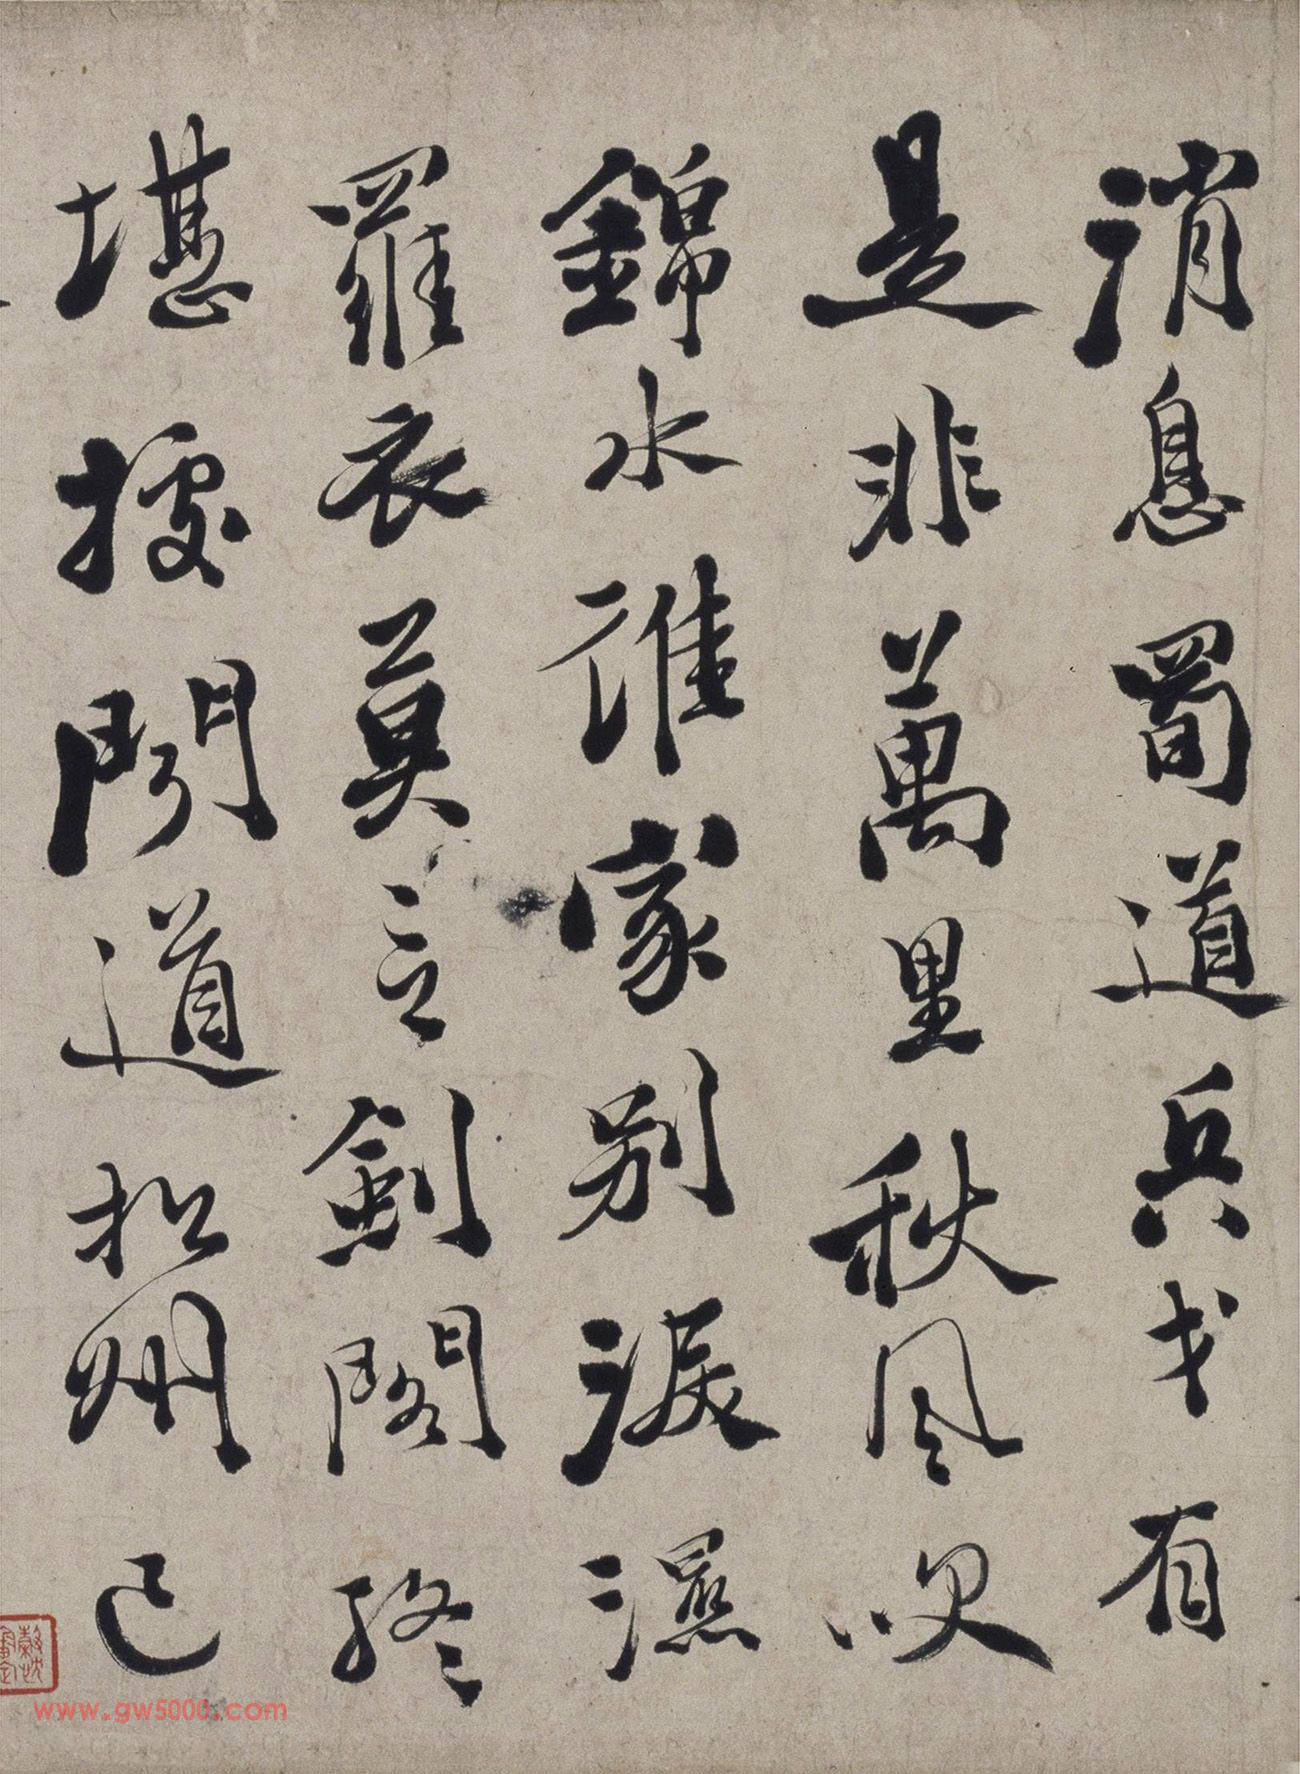 消息蜀道兵戈有
是非萬里秋風吹
錦水誰家別淚濕
羅衣莫言劍閣終
堪據聞道松州已
www.gw5000.com